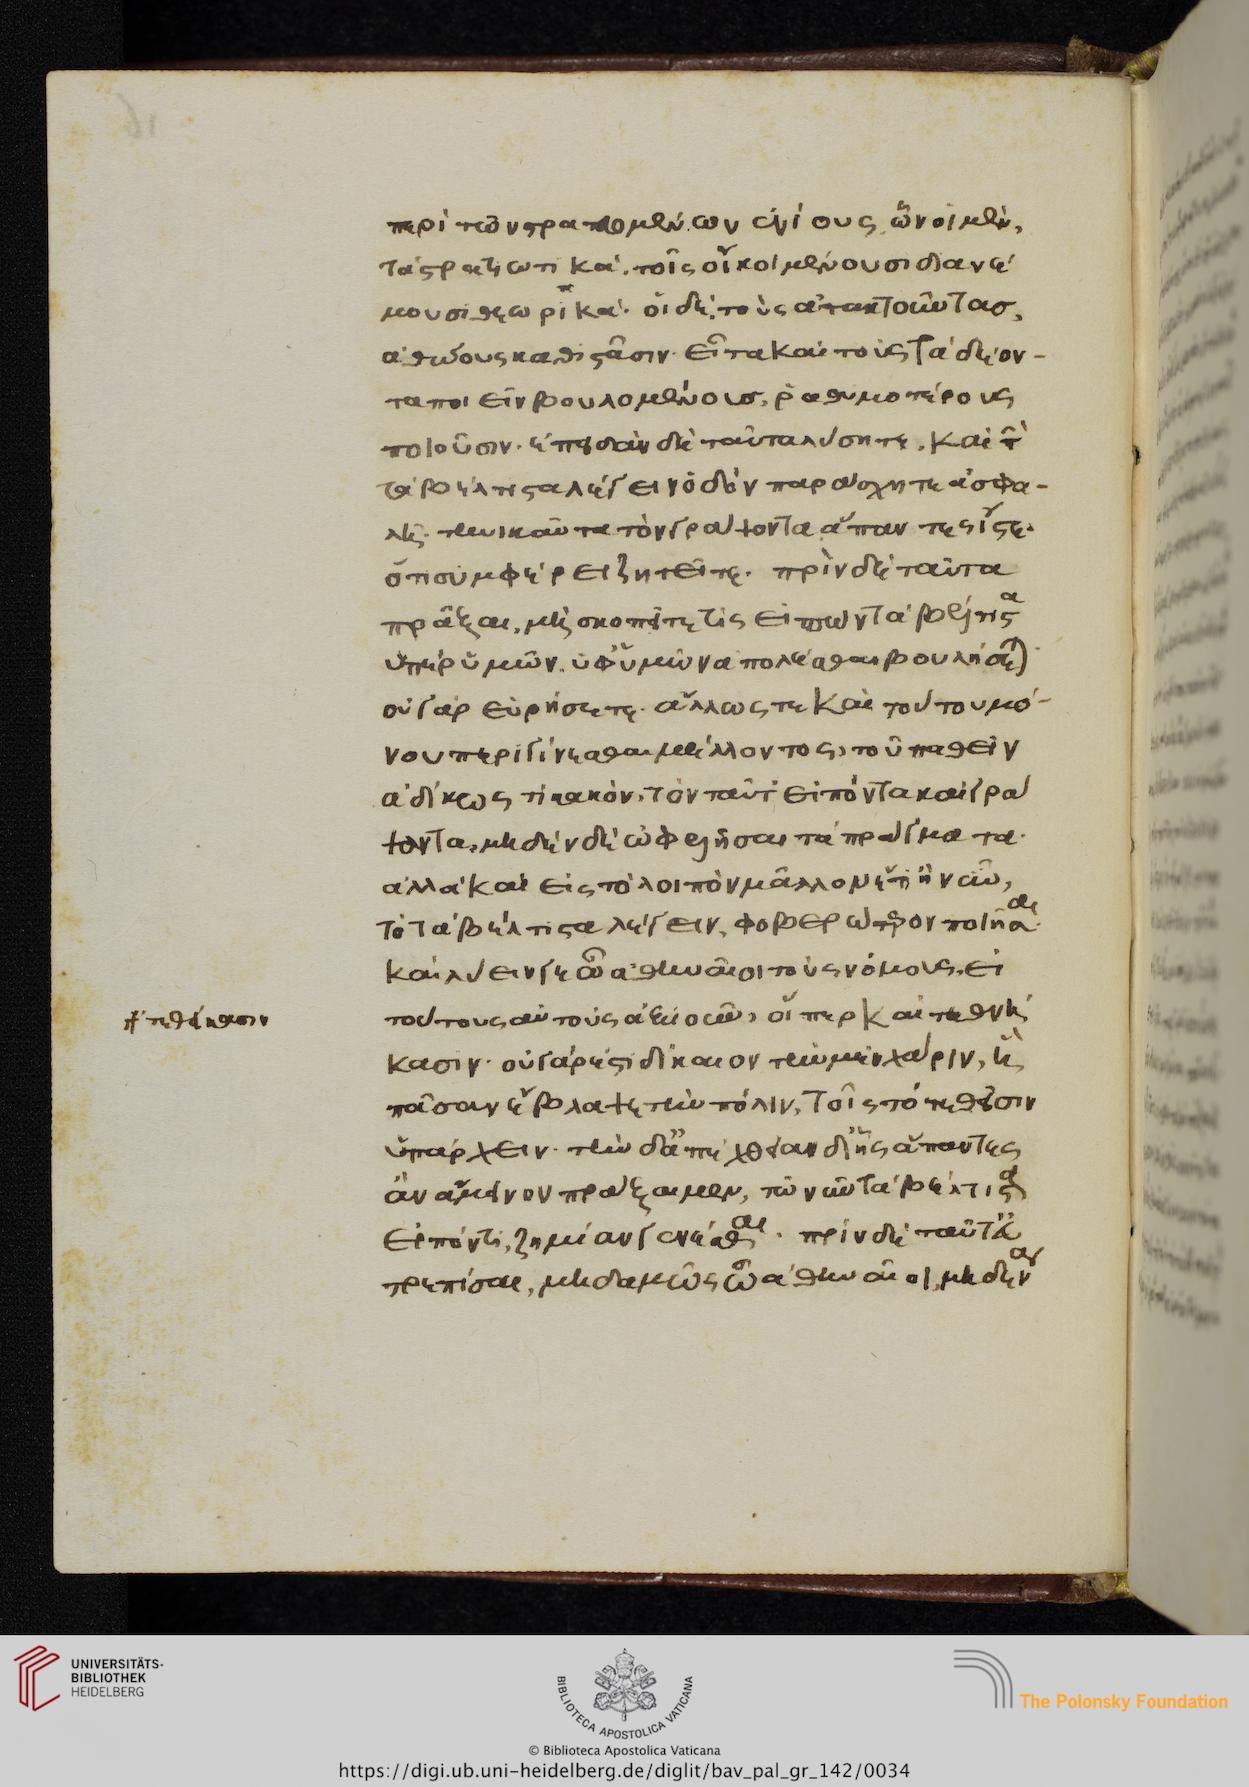 περὶ τῶν στρατευομένων ἐνίους, ὧν οἱ μὲν,
τὰ στρατιωτικά. τοῖς οἴκοι μένουσι διανέ
μουσι θεωρικά. οἱ δὲ, τοὺς ἀτακτοῦντας,
ἀθώους καθιστᾶσιν. εἶτα καὶ τοὺς τὰ δέον-
τα ποιεῖν βουλομένους, ῥαθυμοτέρους
ποιοῦσιν. ἐπειδὰν δὲ ταῦτα λύσητε, καὶ τὴν
τὰ βέλτιστα λέγειν ὁδὸν παράσχητε ἀσφα-
λῆ. τηνικαῦτα τὸν γράψοντα ἃ πάντες ἴστε.
ὅτι συμφέρει ζητεῖτε. πρὶν δὲ ταῦτα
πρᾶξαι, μὴ σκοπεῖτε τίς εἰπὼν τὰ βέλτιστα
ὑπὲρ ὑμῶν. ὑφ' ὑμῶν ἀπολέσθαι βουλήσεται.
οὐ γὰρ εὑρήσετε. ἄλλως τε καὶ τούτου μό-
νου περιγίνεσθαι μέλλοντος, τοῦ παθεῖν
ἀδίκως τι κακὸν, τὸν ταῦτ' εἰπόντα καὶ γρά
ψοντα, μηδὲν δὲ ὠφελῆσαι τὰ πράγματα.
ἀλλὰ καὶ εἰς τὸ λοιπὸν μᾶλλον ἔτι ἢ νῦν,
τὸ τὰ βέλτιστα λέγειν, φοβερώτερον ποιῆσαι.
καὶ λύειν γε ὦ ἀθηναῖοι τοὺς νόμους. εἰ
τούτους αὐτοὺς ἀξιοῦν, οἵπερ καὶ τεθνή
γρ τεθείκασιν
κασιν. οὐ γάρ ἐστι δίκαιον τὴν μὲν χάριν, ἣ
πᾶσαν ἔβλαψε τὴν πόλιν, τοῖς τότε θεῖσιν
ὑπάρχειν. τὴν δ' ἀπέχθειαν δι' ἧς ἅπαντες
ἂν ἄμεινον πράξαιμεν, τῷ νῦν τὰ βέλτιστα
εἰπόντι, ζημίαν γενέσθαι. πρὶν δὲ ταῦτα
τρεπίσαι, μηδαμῶς ὦ ἀθηναῖοι, μηδέν